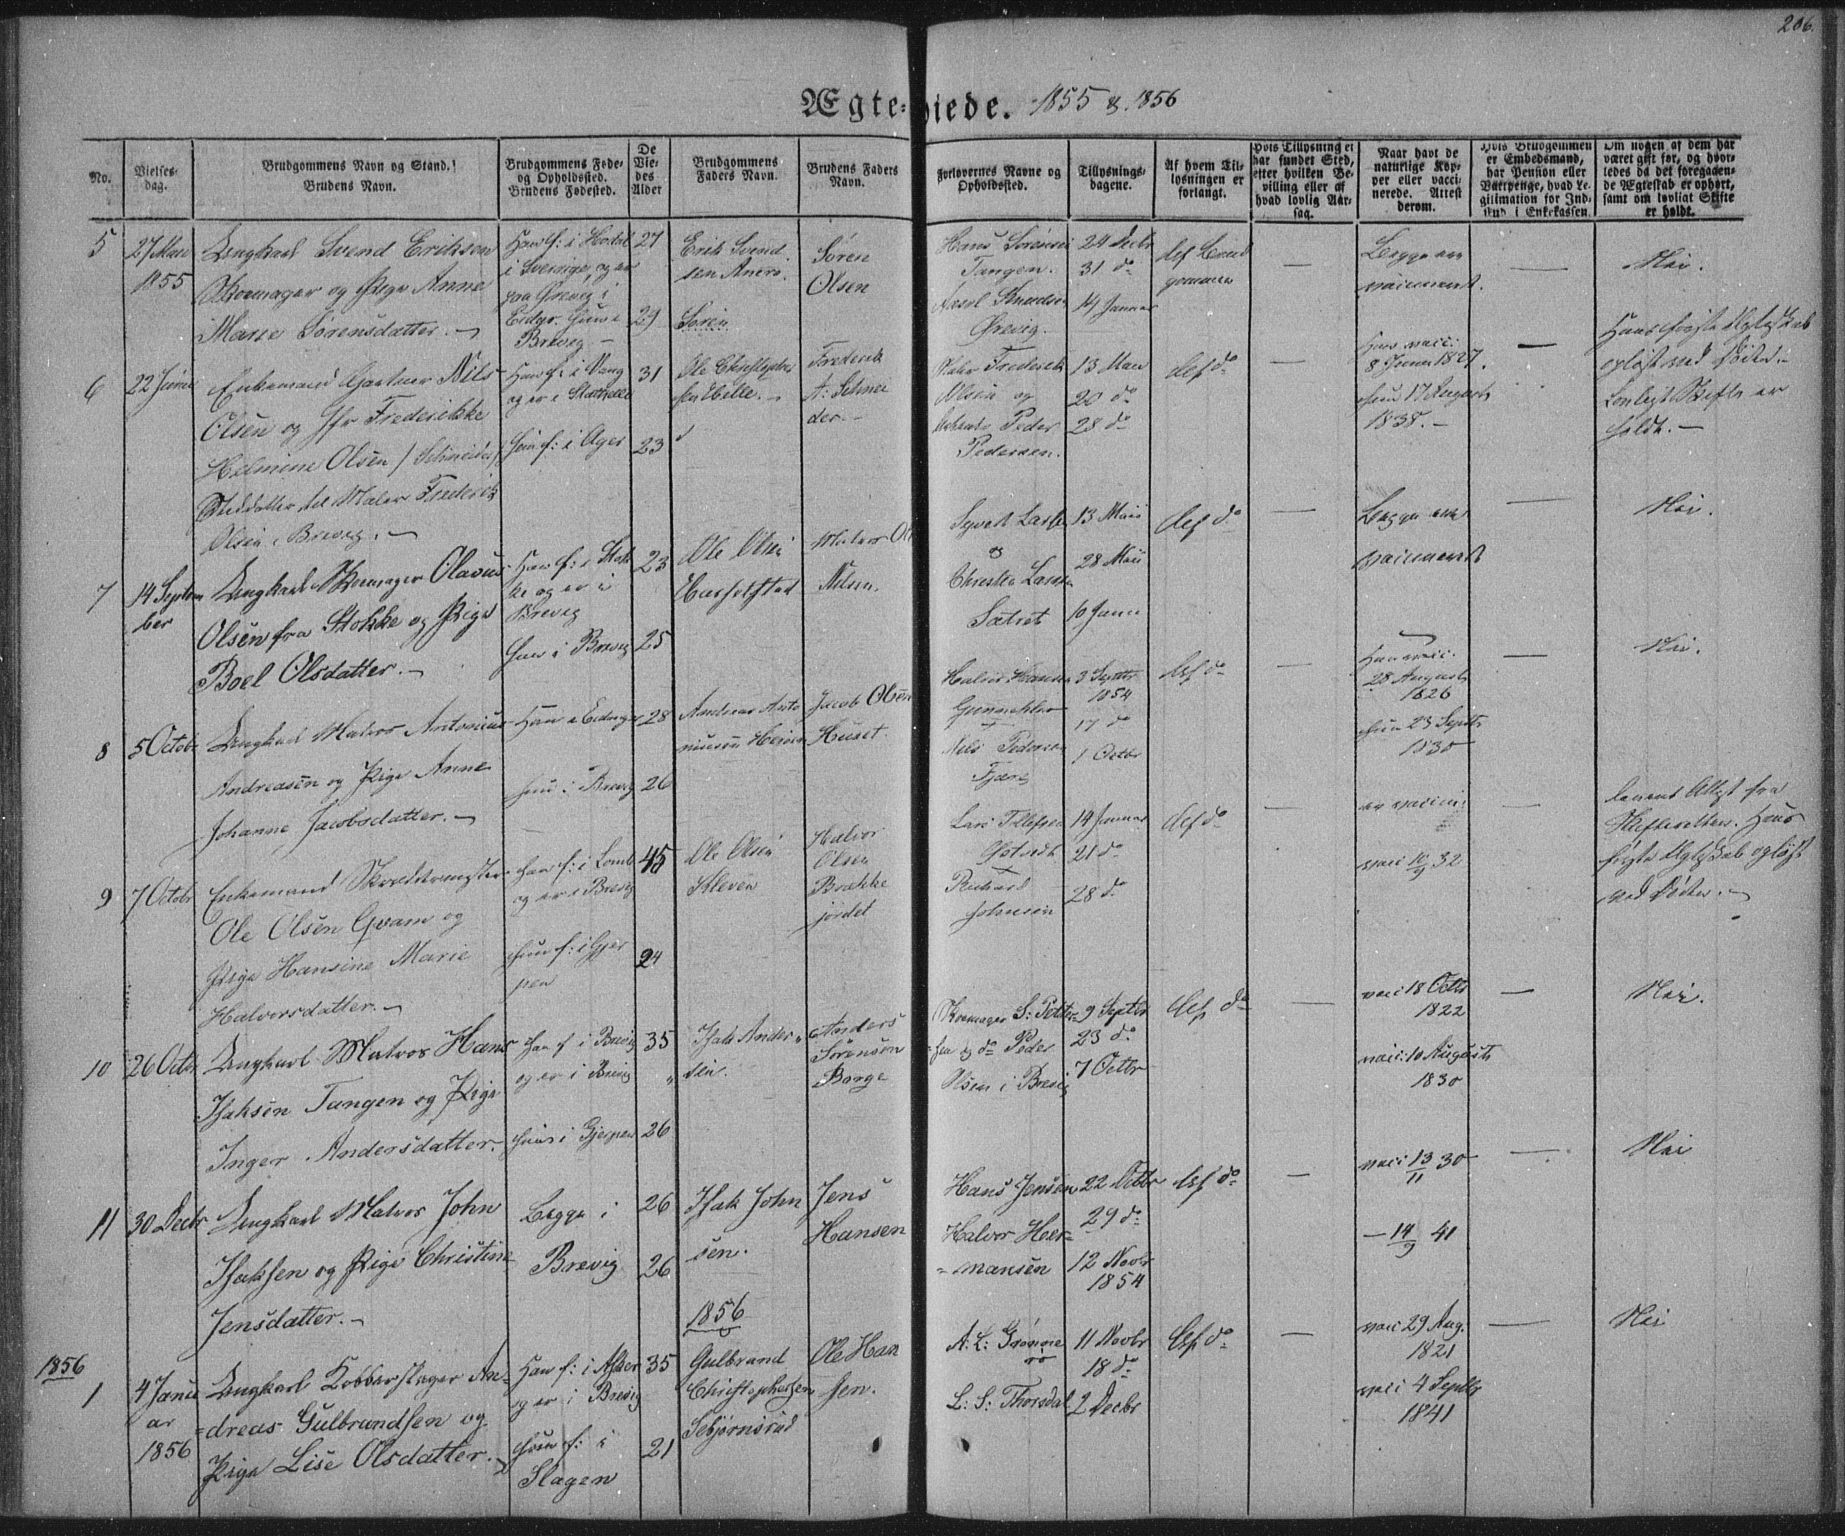 206.
Ægte-viede. 1855 & 1856
No.
Vielses-
dag.
Brudgommens Navn og Stand.
Brudens Navn.
Brudgommens Føde-
og Opholdssted.
Brudens Fødested.
De
Vie-
des
Alder
Brudgommens
Faders Navn.
Brudens Faders
Navn.
Forlovernes Navne og
Opholdssted.
Tillysnings-
dagene.
Af hvem Til-
lysningen er
forlangt.
Hvis Tillysning ei
har fundet Sted,
efter hvilken Be-
villing eller af
hvad lovlig Aar-
sag.
Naar havt de
naturlige Kop-
per eller vacci-
nerede. Attest
derom.
Hvis Brudgommen
er Embedsmand,
har Pension eller
Vartpenge, hvad Le-
gitimation for Ind-
skud i Enkekassen.
Om nogen af dem har
været gift før, og hvor-
ledes da det foregaaen-
de Ægteskab er ophørt,
samt om lovligt Skifte
er holdt.
5
27
1855
Ungkarl Svend Eriksen
Skomager og Pige Anne
Marie Sørensdatter.
Han f: i
i Sverrige, og er
paa Ørevig i
Eidgr. Hun i
Brevig
27
29
Erik Svend
sen
Søren
Søren
Olsen
Hans Sørensen
Tangen.
Axel Knudsen
Ørevig.
24 Decbr
31 do
14 Januar
Begge ere
vaccineret.
Nei.
6
22 Juni
Enkemand Gartner Nils
Olsen og Jfr Frederikke
Helmine Olsen / Schneider /
Steddatter til Maler Frederik
Olsen i Brevig.
Han f: i Vang
og er i Stathelle
Hun f: i Ager
31
23
Ole Christophersen
Frederik
A: Schnei
der.
Maler Frederik
Olsen og
Peder
Pedersen.
13 Mai
20 do
28 do
do
Han vacc:
8 Juni 1827.
Hun 17 August
1838.
Hans første Ægteskab
opløst ved Døden.
Lovligt Skifte er
holdt.
7
14 Septem
ber
Ungkarl Skomager Olavus
Olsen fra Stokke og Pige
Boel Olsdatter.
Han f: i Stok
ke og er i
Brevig
Hun i Brevig
23
25
Ole Olsen
Matros Ole
Nilsen.
Syvert Larsen
og
Christen Larsen
Sætret
13 Maii
28 Maii
10 Juni
do
Begge ere
vaccineret
Nei.
8
5 Octobr
Ungkarl Matros Antonius
Andreasen og Pige Anne
Johanne Jacobsdatter.
Han i Eidanger
Hun i Brevig
28
26
Andreas Anto
niusen Heien
Jacob Olsen
Huset.
Halvor Hansen
Nils Pedersen
3 Septbr
1854
17 do
1 Octbr
do
Han vacc:
28 August
1826
Hun 23 Septbr
1830
Nei.
9
7 Octobr
Enkemand Skrædermester
Ole Olsen Qvam og
Pige Hansine Marie
Halvorsdatter.
Han f: i Lomb
og er i Brevig
Hun f: i Gjer
pen
45
24
Ole Olsen
Kleven
Halvor
Olsen
Brække
jordet
Lars Tollefsen
Richard
Johnsen
14 Januar
21 do
28 do
do
er vaccin:
vacc 10/9 32
Attest fra
Skifteretten. Hans
første Ægteskab opløst
ved Døden.
10
26 Octb
Ungkarl Matros Hans
Isaksen Tangen og Pige
Inger Andersdatter.
Han f i Brevig
og er i Brevig
Hun i Gjerpen
35
26
Isak Ander-
sen.
Anders
Sørensen
Borge
Skomager S: Petter-
sen og do Peder
Olsen i Brevig
9 Septbr
23 do
7 Octbr
do
vacc: 18 Octbr
1822
vacc: 10 August
1830
Nei.
11
30 Decbr
Ungkarl Matros John
Isaksen og Pige Christine
Jensdatter.
Begge i
Brevig
26
26
Isak John
sen.
Jens
Hansen
Hans Jensen
Halvor Her-
mansen
22 Octbr
29 do
12 Novbr
1854
do
vacc: 13/11 30
14/9 41
Nei
1856
1856
1
4 Janu
ar
1856
Ungkarl Kobberslager An-
dreas Gulbrandsen og
Pige Lise Olsdatter.
Han f: i Asker
og er i Brevig
Hun f: i
Slagen
35
21
Gulbrand
Christophersen
Sebjørnsrud
Ole Han
sen.
A: L: Grønne
rø
L: S: Thorsdal
11 Novbr
18 do
2 Decbr
do
vacc 29 Aug.
1821
vacc 4 Septbr
1841
Nei